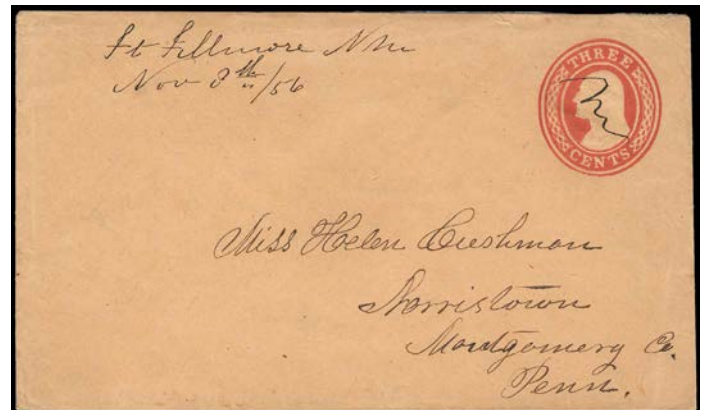 Ft Fillmore NM
Nov 8th/56
THREE
CENTS
Miss Helen Cushman
Norristown
Montgomery Co.
Penn.